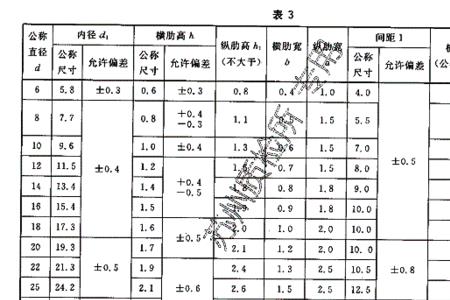 表 3
公称直径 d 内径 d₁ 横肋高 h 纵肋高 h₁ (不大于) 横肋宽 b 纵肋宽 间距 l
公称尺寸 允许偏差 公称尺寸 允许偏差 公称尺寸 允许偏差 (公
6 5.8 ±0.3 0.6 ±0.3 0.8 0.4 1.0 4.0 ±0.5
8 7.7 ±0.4 0.8 +0.4 -0.3 1.1 1.5 5.5
10 9.6 1.0 ±0.4 1.3 0.6 1.5 7.0
12 11.5 1.2 +0.4 -0.5 0.7 1.5 8.0
14 13.4 1.4 1.8 0.8 1.8 9.0
16 15.4 1.5 0.9 1.8 10.0
18 17.3 1.6 ±0.5 1.0 2.0 10.0
20 19.3 ±0.5 1.7 2.1 1.2 2.0 10.0 ±0.8
22 21.3 1.9 ±0.6 2.4 1.3 2.5 10.5
25 24.2 2.1 2.6 1.5 2.5 12.5